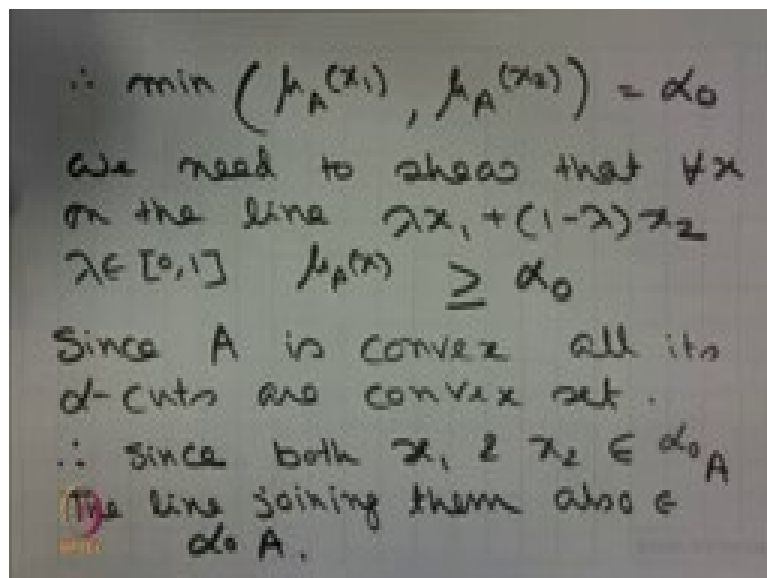 ∴ min (μ_A(x₁), μ_A(x₂)) = α₀
We need to show that ∀x
on the line λx₁ + (1-λ)x₂
λ∈ [0,1] μ_A(x) ≥ α₀
Since A is convex all its
α-cuts are convex set.
∴ Since both x₁ & x₂ ∈ α₀_A
The line joining them also ∈
α₀ A.